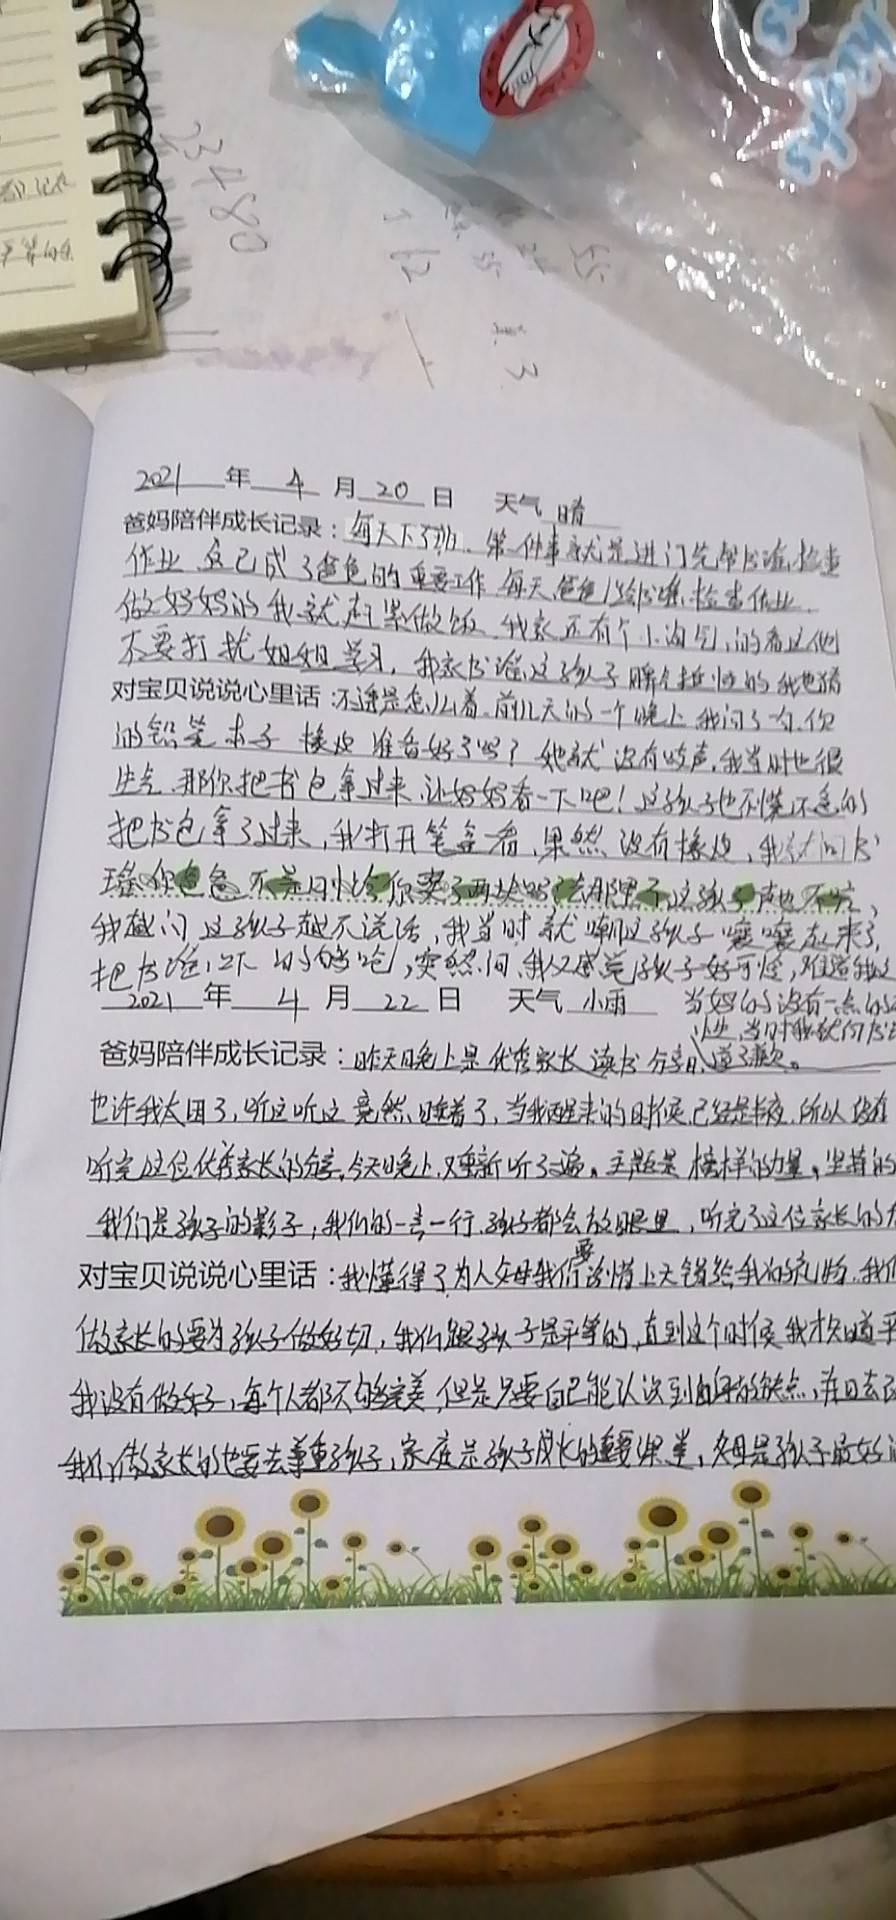 2021年4月20日 天气晴
爸妈陪伴成长记录：每天下了班、第一件事就是进门先帮书瑶检查
作业 这已成了爸爸的重要工作 每天爸爸给书瑶检查作业
做妈妈的我就赶紧做饭 我家还有个小淘气，的看这他
不要打扰姐姐学习，我家书瑶这孩子脾气挺怪的 我也猜
对宝贝说说心里话：不透是怎么着、前几天的一个晚上 我问了句，你
的铅笔 本子 橡皮 准备好了吗？她就没有吱声，我当时也很
生气 那你把书包拿过来 让妈妈看一下吧！这孩子也不慌不急的
把书包拿了过来，我打开笔盒一看，果然没有橡皮，我就问书
瑶 你爸爸不是刚给你买了两块吗？去那里了 这孩子声也不吭，
我越问这孩子越不说话，我当时就嘲这孩子嚷嚷起来了，
突然间、我又感觉孩子好可怜，难道我这
当妈的没有一点的
2021年4月22日 天气小雨
当时我就向书
道了歉。
爸妈陪伴成长记录：昨天晚上是优秀家长读书分享，
也许我太困了，听这听这竟然睡着了，当我醒来的时候已经是半夜，所以没有
听完这位优秀家长的分享，今天晚上又重新听了遍。主题是榜样的力量，坚持的
我们是孩子的影子，我们的一言一行，孩子都会放眼里，听完了这位家长的
对宝贝说说心里话：我懂得了为人父母我们要珍惜上天错给我的礼物，我们
做家长的要为孩子做好切，我们跟孩子是平等的，直到这个时候我才知道平
我没有做好，每个人都不够完美，但是只要自己能认识到自身的缺点，并且去改
我们做家长的也要去尊重孩子，家庭是孩子成长的重要课堂，父母是孩子最好的
23480